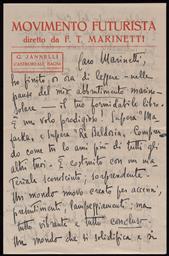 MOVIMENTO FUTURISTA
diretto da F. T. MARINETTI
G. JANNELLI
CASTROREALE BAGNI
Caro Marinetti,
ho finito or ora di leggere - nelle
pause del mio abbrutimento marino-
solare - il tuo formidabile libro.
È un volo prodigioso! Supera Ma-
farka, e supera Re Baldoria. Compren-
do come tu lo ami più di tutti gli
altri tuoi. È costruito con un ma-
teriale sconosciuto, sorprendente.
Un mondo nuovo creato per accenni,
presentimenti, lampeggiamenti; ma
tutto vibrante e tutto concluso.
Un mondo che si solidifica e si